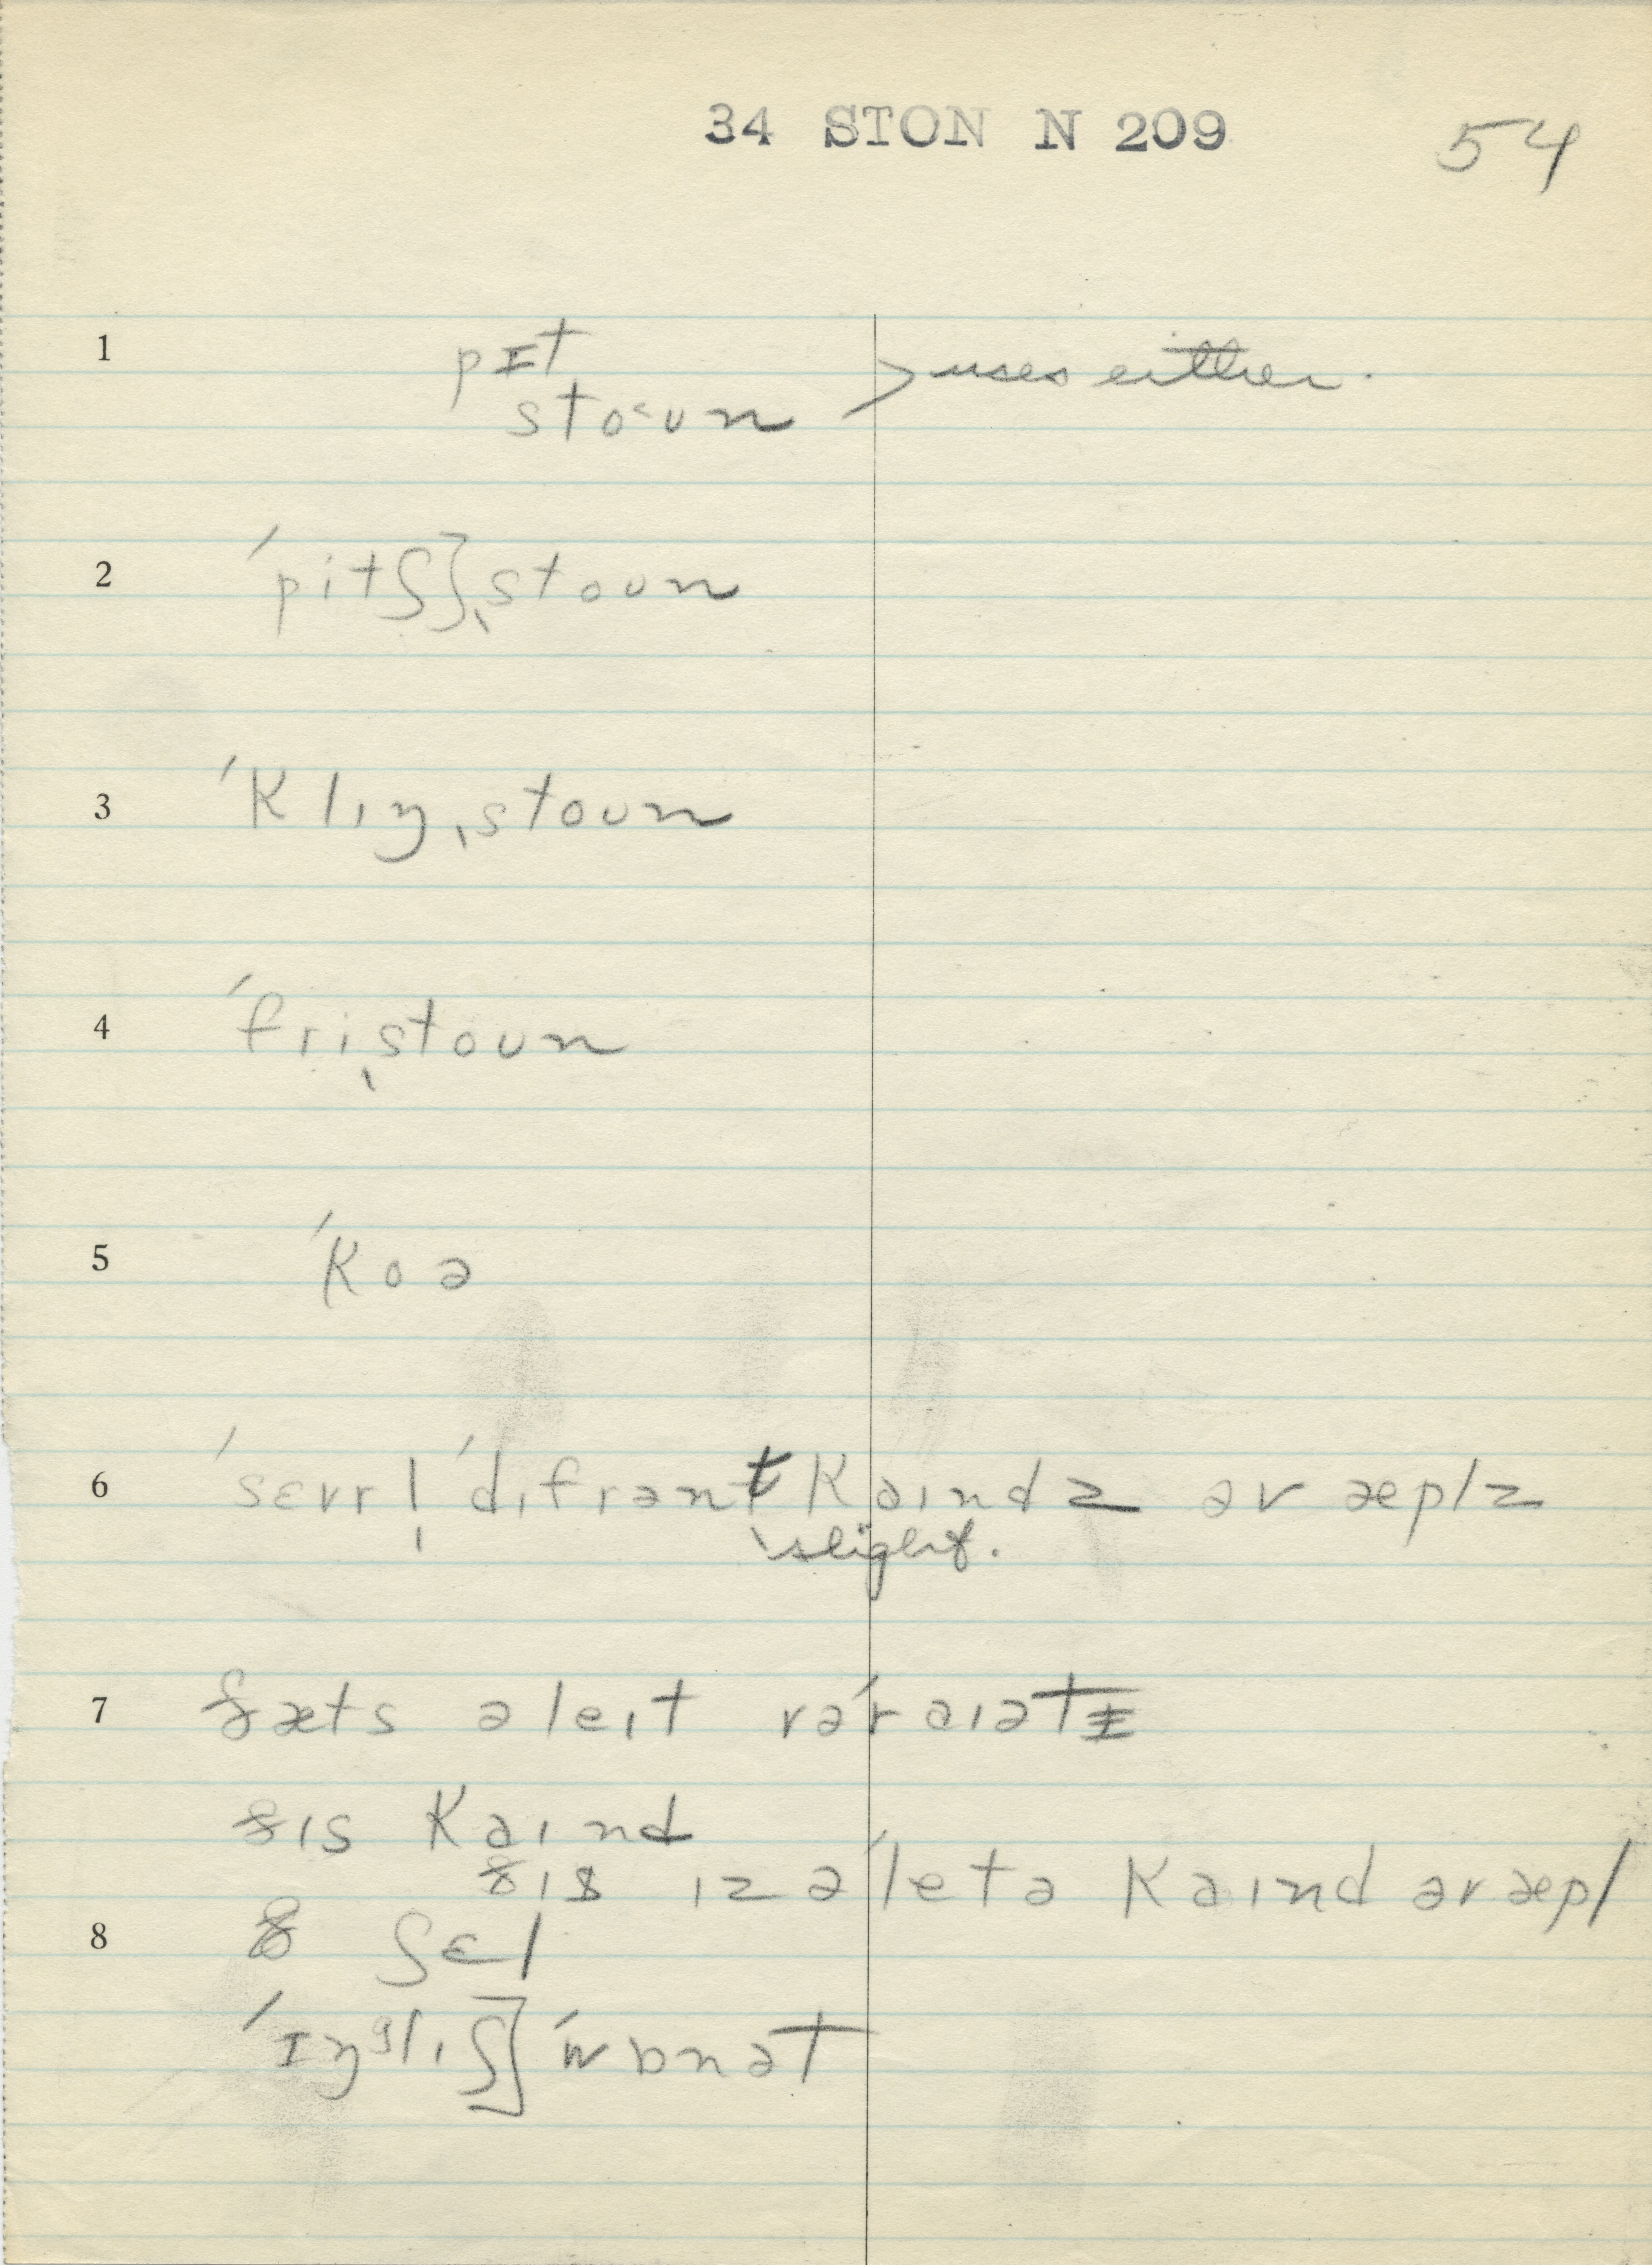 34 STON N 209 54
1 pɪt > uses either.
stoʊn
2 ˈpitʃ] ˌstoʊn
3 ˈklɪŋˌstoʊn
4 ˈfriˌstoʊn
5 ˈkoə
6 ˈsɛvrl̩ ˈdɪfrənt kaɪndz əv æplz
slight.
7 ðæts ə leɪt vəˈraɪətɪ
ðɪs kaɪnd
ðɪs ɪz ə ˈletə kaɪnd əv æpl
8 ʃɛl
ˈɪŋɡlɪʃ] ˈwɒnət